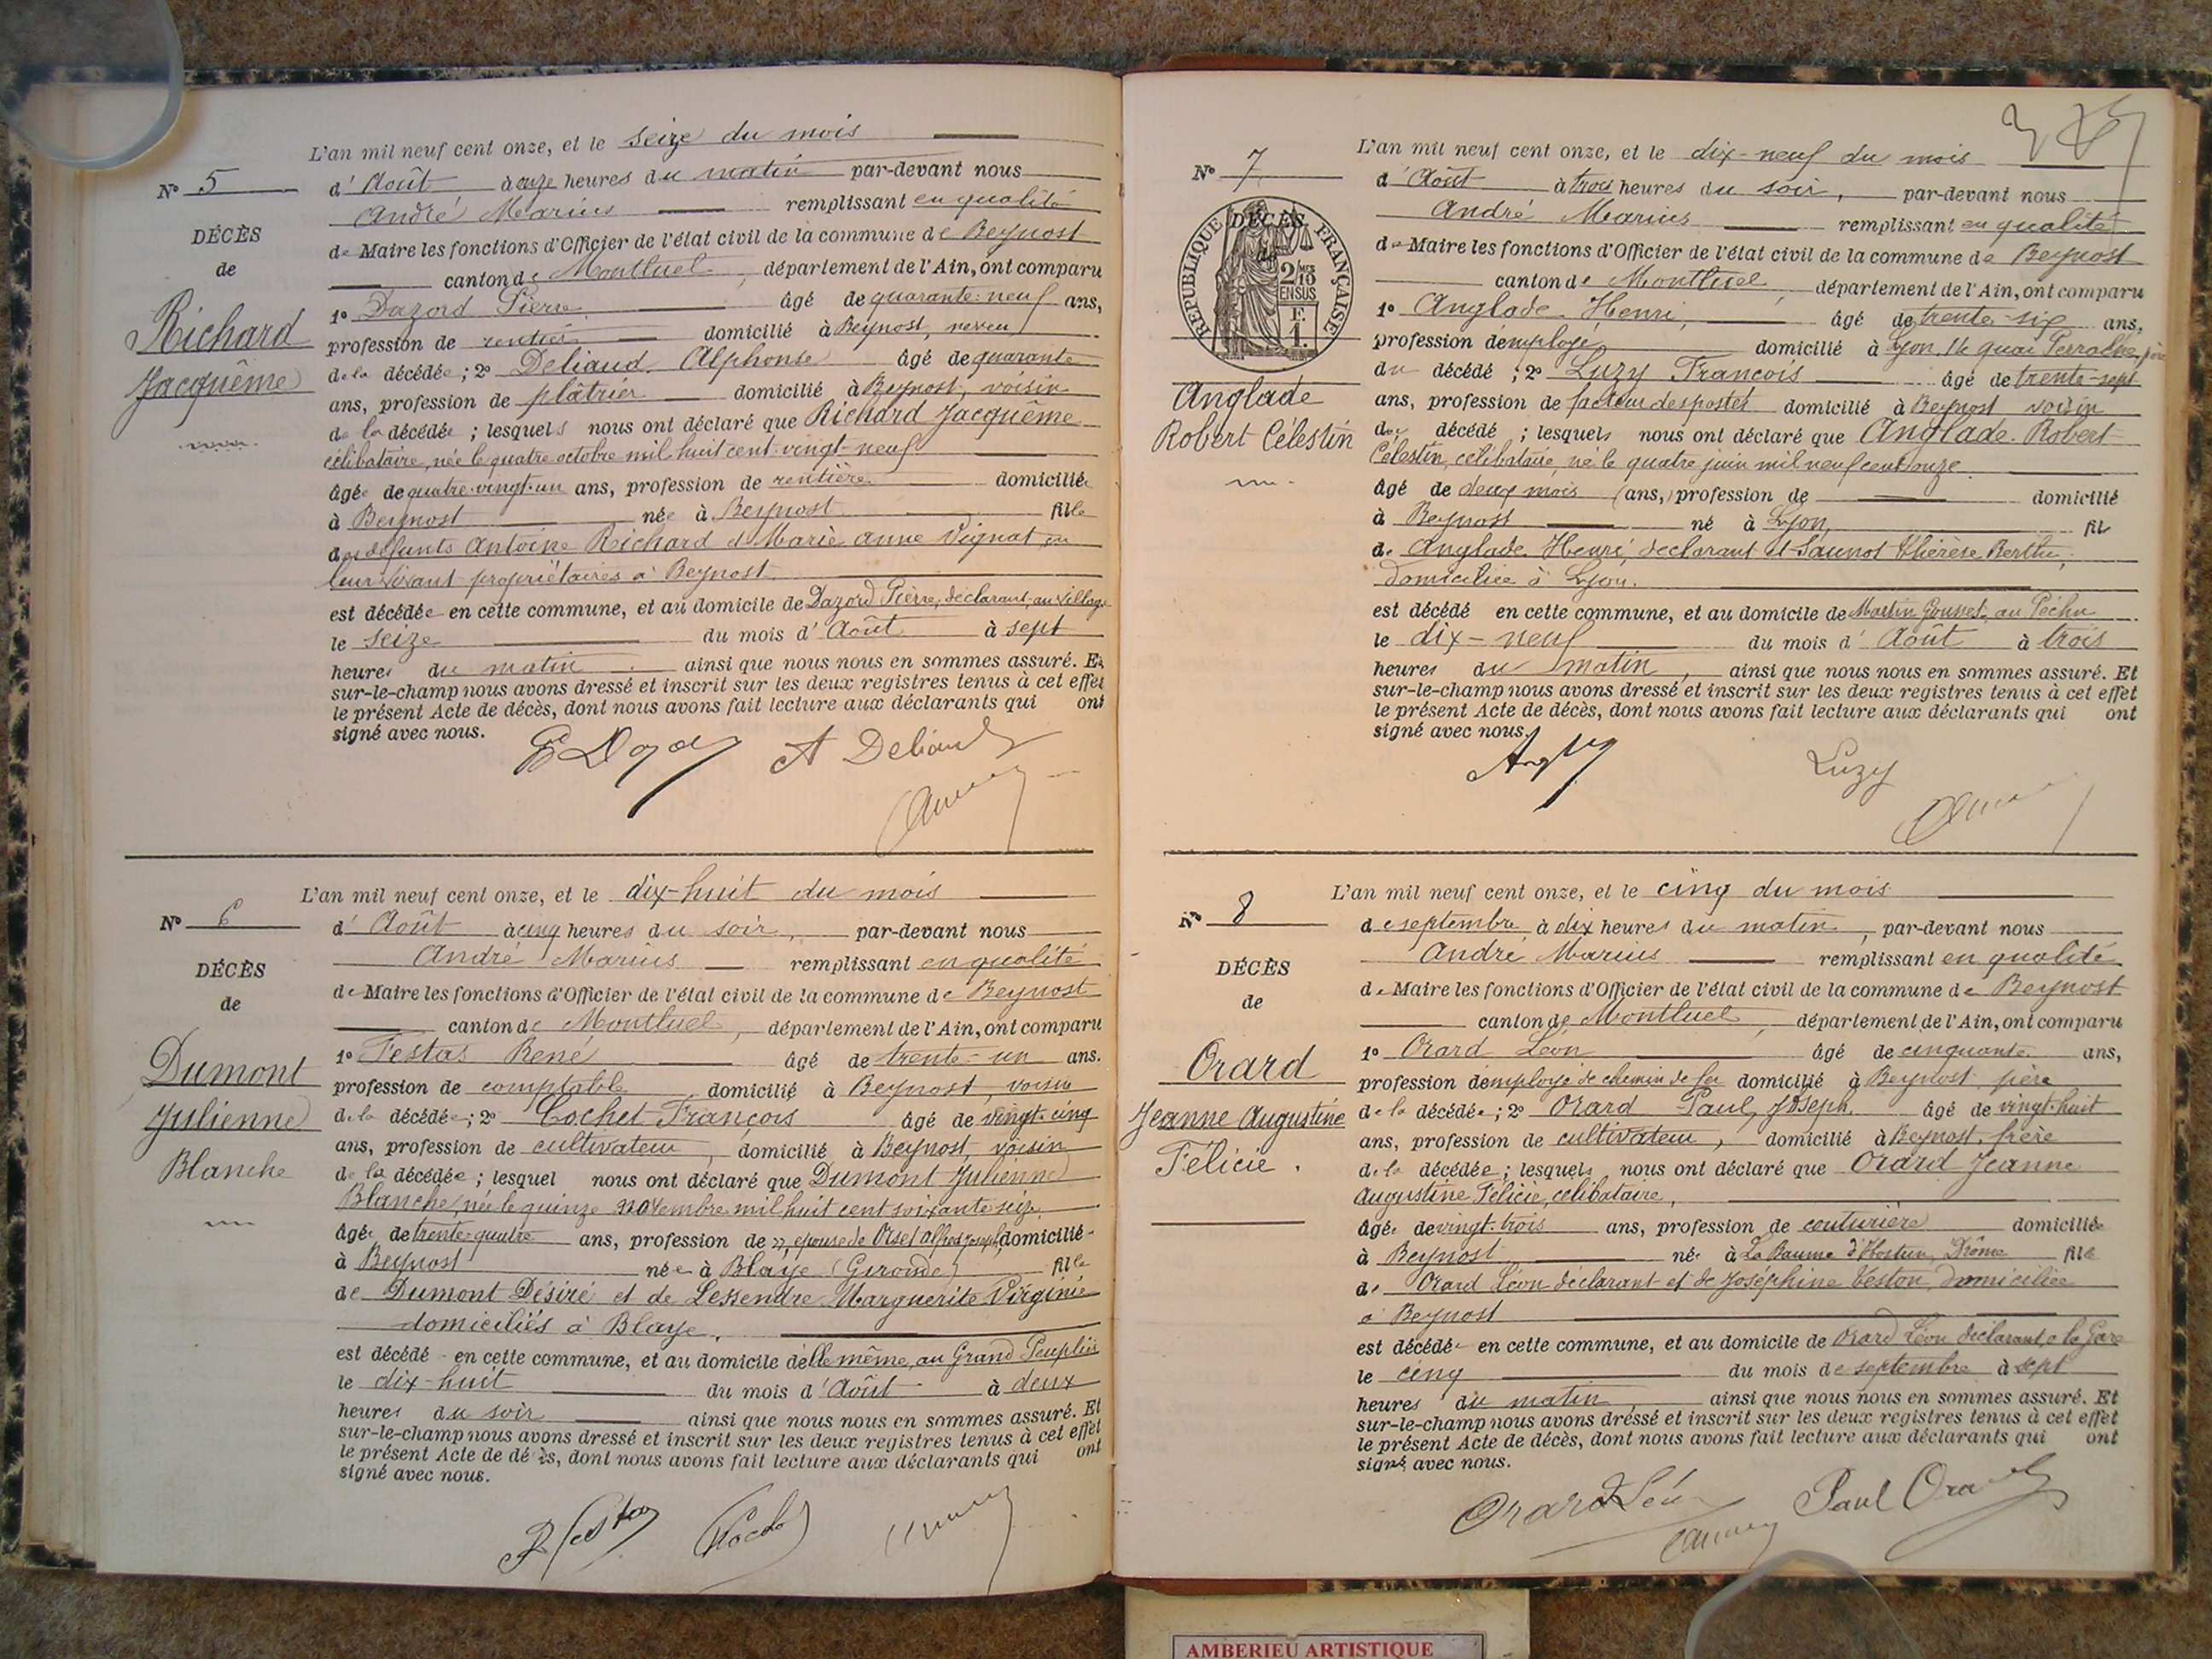 L'an mil neuf cent onze, et le seize du mois
N° 5
d'Août à onze heures du matin par-devant nous
André Marius remplissant en qualité
DÉCÈS
de Maire les fonctions d'Officier de l'état civil de la commune de Beynost
de
canton de Montluel, département de l'Ain, ont comparu
1° Dazord Pierre âgé de quarante-neuf ans,
Richard
profession de rentier domicilié à Beynost, neveu
de la décédée; 2° Deliaud Alphonse âgé de quarante
Jacquême
ans, profession de plâtrier domicilié à Beynost, voisin
de la décédée; lesquels nous ont déclaré que Richard Jacquême
célibataire, née le quatre octobre mil huit cent vingt-neuf
âgée de quatre-vingt-un ans, profession de rentière domiciliée
à Beynost née à Beynost fille
des défunts Antoine Richard et Marie Anne Vignat en
leur vivant propriétaires à Beynost
est décédée en cette commune, et au domicile de Dazord Pierre, déclarant, au village
le seize du mois d'Août à sept
heures du matin ainsi que nous nous en sommes assuré. Et
sur-le-champ nous avons dressé et inscrit sur les deux registres tenus à cet effet
le présent Acte de décès, dont nous avons fait lecture aux déclarants qui ont
signé avec nous.
A Deliaud
L'an mil neuf cent onze, et le dix-huit du mois
N° 6
d'Août à cinq heures du soir, par-devant nous
André Marius remplissant en qualité
DÉCÈS
de Maire les fonctions d'Officier de l'état civil de la commune de Beynost
de
canton de Montluel, département de l'Ain, ont comparu
1° Festas René âgé de trente-un ans.
Dumont
profession de comptable domicilié à Beynost, voisin
Julienne
de la décédée; 2° Cochet François âgé de vingt-cinq
ans, profession de cultivateur, domicilié à Beynost, voisin
Blanche
de la décédée; lesquel nous ont déclaré que Dumont Julienne
Blanche, née le quinze novembre mil huit cent soixante seize
âgée de trente-quatre ans, profession de », épouse de Orset Alfred Joseph, domiciliée
à Beynost née à Blaye (Gironde) fille
de Dumont Désiré et de Lessendre Marguerite Virginie
domiciliés à Blaye,
est décédé en cette commune, et au domicile d'elle même, au Grand Peuplier
le dix-huit du mois d'Août à deux
heures du soir ainsi que nous nous en sommes assuré. Et
sur-le-champ nous avons dressé et inscrit sur les deux registres tenus à cet effet
le présent Acte de décès, dont nous avons fait lecture aux déclarants qui ont
signé avec nous.
L'an mil neuf cent onze, et le dix-neuf du mois
N° 7
d'Août à trois heures du soir, par-devant nous
André Marius remplissant en qualité
RÉPUBLIQUE FRANÇAISE
DÉCÈS
de
2/10 EN SUS
F. 1.
de Maire les fonctions d'Officier de l'état civil de la commune de Beynost
canton de Montluel, département de l'Ain, ont comparu
1° Anglade Henri, âgé de trente-six ans,
profession d'employé domicilié à Lyon, 14 quai Perrache, père
du décédé; 2° Luzy François âgé de trente-sept
Anglade
ans, profession de facteur des postes domicilié à Beynost voisin
Robert Célestin
du décédé; lesquels nous ont déclaré que Anglade Robert
Célestin, célibataire, né le quatre juin mil neuf cent onze
âgé de deux mois (ans,) profession de domicilié
à Beynost né à Lyon fils
de Anglade Henri, déclarant et Saunot Thérèse Berthe,
domiciliée à Lyon.
est décédé en cette commune, et au domicile de Martin Gousset, au Péchu
le dix-neuf du mois d'Août à trois
heures du matin, ainsi que nous nous en sommes assuré. Et
sur-le-champ nous avons dressé et inscrit sur les deux registres tenus à cet effet
le présent Acte de décès, dont nous avons fait lecture aux déclarants qui ont
signé avec nous.
Luzy
L'an mil neuf cent onze, et le cinq du mois
N° 8
de septembre à dix heures du matin, par-devant nous
André Marius remplissant en qualité
DÉCÈS
de Maire les fonctions d'Officier de l'état civil de la commune de Beynost
de
canton de Montluel, département de l'Ain, ont comparu
1° Orard Léon âgé de cinquante ans,
Orard
profession d'employé de chemin de fer domicilié à Beynost, père
Jeanne Augustine
de la décédée; 2° Orard Paul, Joseph âgé de vingt-huit
ans, profession de cultivateur, domicilié à Beynost, frère
Félicie.
de la décédée; lesquels nous ont déclaré que Orard Jeanne
Augustine Félicie, célibataire,
âgée de vingt-trois ans, profession de couturière domiciliée
à Beynost née à La Baume d'Hostun, Drôme fille
de Orard Léon déclarant et de Joséphine Veston, domiciliée
à Beynost
est décédée en cette commune, et au domicile de Orard Léon déclarant, à la Gare
le cinq du mois de septembre à sept
heures du matin ainsi que nous nous en sommes assuré. Et
sur-le-champ nous avons dressé et inscrit sur les deux registres tenus à cet effet
le présent Acte de décès, dont nous avons fait lecture aux déclarants qui ont
signé avec nous.
Orard Léon
Paul Orard
AMBERIEU ARTISTIQUE